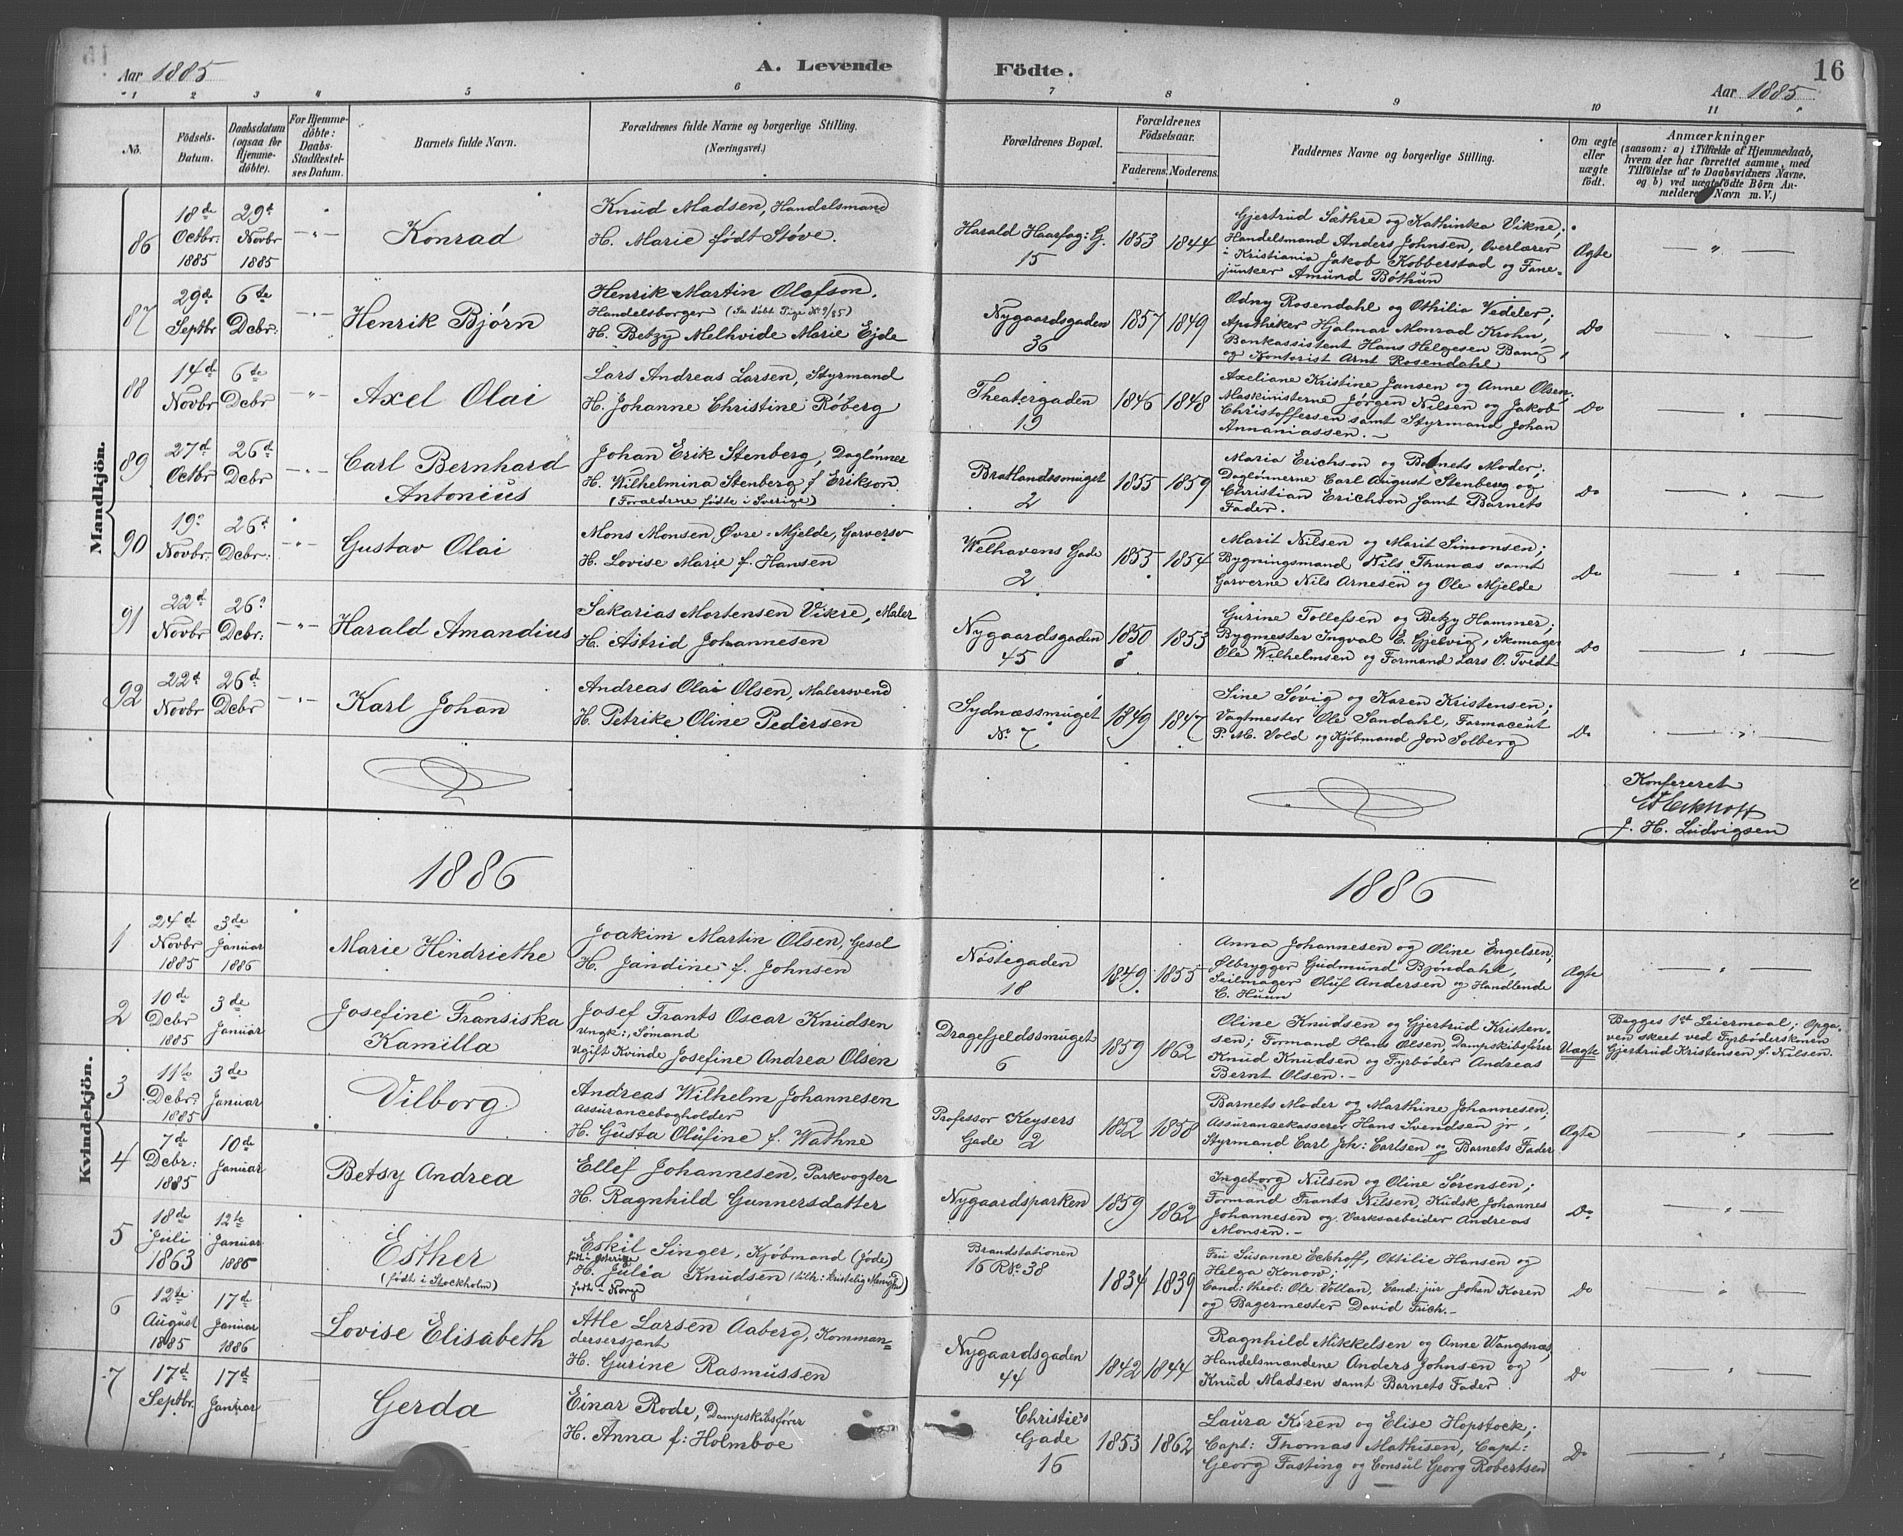 Aar 1885
A. Levende Födte.
16
Aar 1885.
1 2 3 4 5 6 7 8 9 10 11
No.
Födsels-
Datum.
Daabsdatum
(ogsaa for
Hjemme-
döbte).
For Hjemme-
döbte:
Daabs-
Stadfæstel-
ses Datum.
Barnets fulde Navn.
Forældrenes fulde Navne og borgerlige Stilling.
(Næringsvei.)
Forældrenes Bopæl.
Forældrenes
Födselsaar.
Faderens. Moderens.
Faddernes Navne og borgerlige Stilling.
Om ægte
eller
uægte
födt.
Anmærkninger
(saasom: a) i Tilfælde af Hjemmedaab,
hvem der har forrettet samme, med
Tilföielse af to Daabsvidners Navne.
og b) ved uægtefödte Börn An-
melderens Navn m. V.)
Mandkjön.
86
18de
Octbr:
1885
29d
Novbr
1885
Konrad
Knud Madsen, Handelsmand
H. Marie født Støve.
Harald Haarfag: G.
15
1853 1844
Gjertrud Sæthre og Kathinka Vikne;
Handelsmand Anders Johnsen, Overlærer
i Kristiania Jakob Kobberstad og Fane-
junker Amund Bøthun
Ægte
87
29de
Septbr
6te
Dcbr:
Henrik Bjørn
Henrik Martin Olafson,
Handelsborger (Se døbt Pige No 9/85)
H. Betzy Melhvide Marie Ejde
Nygaardsgaden
36
1857 1849
Odny Rosendahl og Othilia Vedeler;
Apotheker Hjalmar Monrad Krohn,
Bankassistent Hans Helgesen Bang
og Kontorist Arnt Rosendahl
Do
88
14de
Novbr
6te
Dcbr
Axel Olai
Lars Andreas Larsen, Styrmand
H. Johanne Christine Røberg
Theatergaden
19
1846 1848
Axeliane Kristine Jansen og Anne Olsen,
Maskinisterne Jørgen Nilsen og Jakob
Christoffersen samt Styrmand Johan
Annaniassen.-
Do
89
27de
Octbr
26de
Dcbr
Carl Bernhard
Antonius
Johan Erik Stenberg, Daglønner
H. Wilhelmina Stenberg f Erikson.
(Forældrene fødte i Sverige)
Brathandssmuget
2
1855 1859
Maria Erichson og Barnets Moder;
Daglønnerne Carl August Stenberg og
Christian Erichson samt Barnets
Fader.
Do
90
19de
Novbr:
26de
Dcbr:
Gustav Olai
Mons Monsen Øvre-Mjelde, Garversv
H. Lovise Marie f. Hansen
Welhavens Gade
2
1855 1854
Marit Nilsen og Marit Simonsen;
Bygningsmand Nils Thunæs samt
Garverne Nils Arnesen og Ole Mjelde
Do
91
22de
Novbr
26de
Dcbr:
Harald Amandius
Sakarias Mortensen Vikre, Maler
H. Astrid Johannesen
Nygaardsgaden
45
1850 1853
Gurine Tollefsen og Betzy Hammer;
Bygmester Ingval E. Gjelvig, Skomager
Ole Wilhelmsen og Formand Lars O. Tvedt
Do
92
22de
Novbr
26de
Dcbr
Karl Johan
Andreas Olai Olsen, Malersvend
H. Petrike Oline Pedersen
Sydnæssmuget
No 7
1849 1847
Sine Søvig og Karen Kristensen;
Vagtmester Ole Sandahl, Farmaceut
P. M. Vold og Kjøbmand Jon Solberg
Do
Konfereret
Eckhoff
J. H. Ludvigsen
1886 1886
Kvindekjön.
1
24de
Novbr
1885
3de
Januar
1886
Marie Hendriethe
Joakim Martin Olsen, Gesel
H. Jandine f. Johnsen
Nøstegaden
18
1849 1855
Anna Johannesen og Oline Engelsen,
Ølbrygger Gudmund Bjøndahl,
Seilmager Oluf Andersen og Handlende
C. Huun
Ægte
2
10de
Dcbr
1885
3de
Januar
Josefine Fransiska
Kamilla
Josef Frants Oscar Knudsen
Ungk:, Sømand
Ugift Kvinde Josefine Andrea Olsen
Dragefjeldssmuget
6
1859 1862
Oline Knudsen og Gjertrud Kristen-
sen; Formand Hans Olsen, Dampskibsfører
Knud Knudsen og Fyrbøder Andreas
Bernt Olsen.-
Uægte
Begges 1st Leiermaal; Opga-
ven skeet ved Fyrbøderskmen
Gjertrud Kristensen f. Nilsen.
3
11te
Dcbr:
1885
3de
Januar
Vilborg
Andreas Wilhelm Johannesen
Assurancebogholder
H. Gusta Olufine f. Wathne
Professor Keysers
Gade 2
1852 1858
Barnets Moder og Marthine Johannesen,
Assurancekasserer Hans Svendsen jr,
Styrmand Carl Joh: Carlsen og Barnets Fader
Ægte
4
7de
Dcbr:
1885
10de
Januar
Betsy Andrea
Ellef Johannesen, Parkvogter
H. Ragnhild Gunnersdatter
Nygaardsparken
1859 1862
Ingeborg Nilsen og Oline Sørensen;
Formand Frants Nilsen, Kudsk Johannes
Johannesen og Værksarbeider Andreas
Monsen.-
Do
5
18de
Juli
1863
12te
Januar
1886
Esther
(født i Stockholm)
Eskil Singer, Kjøbmand (Jøde)
født i Sverige
H. Julia Knudsen (tilh: kristelig Menighed)
født i Norge
Brandstationen
16 R No 38
1834 1839
Fru Susanne Eckhoff, Ottilie Hansen og
Helga Konow;
Cand: theol: Ole Vollan, Cand: jur Johan Koren
og Bagermester David Tuch.-
Do
6
12te
August
1885
17de
Januar
1886
Lovise Elisabeth
Atle Larsen Aaberg, Komman-
dersersjant
H. Gurine Rasmussen
Nygaardsgaden
44
1842 1844
Ragnhild Mikkelsen og Anne Vangsnæs,
Handelsmændene Anders Johnsen og
Knud Madsen samt Barnets Fader.
Do
7
17de
Septbr.
17de
Januar
Gerda
Einar Rode, Dampskibsfører
H. Anna f: Holmboe
Christie's
Gade
16
1853 1862
Laura Koren og Elise Hopstock;
Capt: Thomas Mathisen, Capt:
Georg Fasting og Consul Georg Robertsen
Do